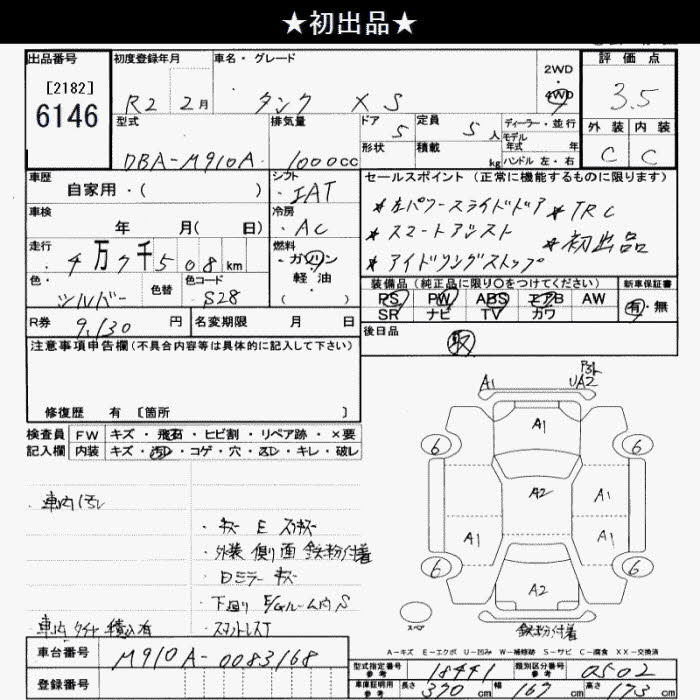 ★初出品★
出品番号
[2182]
6146
初度登録年月
R2 2月
車名・グレード
タンク XS
2WD
・
4WD
評価点
3.5
外装 内装
C C
型式
DBA-M910A
排気量
1000cc
ドア 5
形状
定員 5人
積載 kg
ディーラー・並行
モデル
年式 年
ハンドル 左・右
車歴
自家用・( )
シフト
IAT
車検
年 月( 日)
冷房
AC
走行
4万7千508km
燃料
ガソリン
軽油
・( )
色・
シルバー
色替
色コード
S28
R券 9,130円
名変期限 月 日
セールスポイント (正常に機能するものに限ります)
*左パワースライドドア *TRC
*スマートアシスト *初出品
*アイドリングストップ
装備品 (純正品に限り○をつけてください)
PS PW ABS エアB AW
SR ナビ TV カワ
新車保証書
有・無
後日品
取
注意事項申告欄 (不具合内容等は具体的に記入して下さい)
修復歴 有 [箇所 ]
検査員
記入欄
FW キズ・飛石・ヒビ割・リペア跡・×要
内装 キズ・汚れ・コゲ・穴・スレ・キレ・破レ
・車内汚レ
・キズ E スリキズ
・外装 側面 鉄粉付着
・Dミラー キズ
・下廻り E/Gルーム内 S
・スマントレスT
車内 タイヤ積込有
A1
UA2
A1
6
6
A2
A1
A1
A1
6
6
A2
スペア
鉄粉付着
A-キズ E-エクボ U-凹み W-補修跡 S-サビ C-腐食 XX-交換済
車台番号 M910A-0083168
登録番号
型式指定番号
参考
18441
類別区分番号
参考
0502
車庫証明用
参考
長さ 370cm 幅 167cm 高さ 173cm